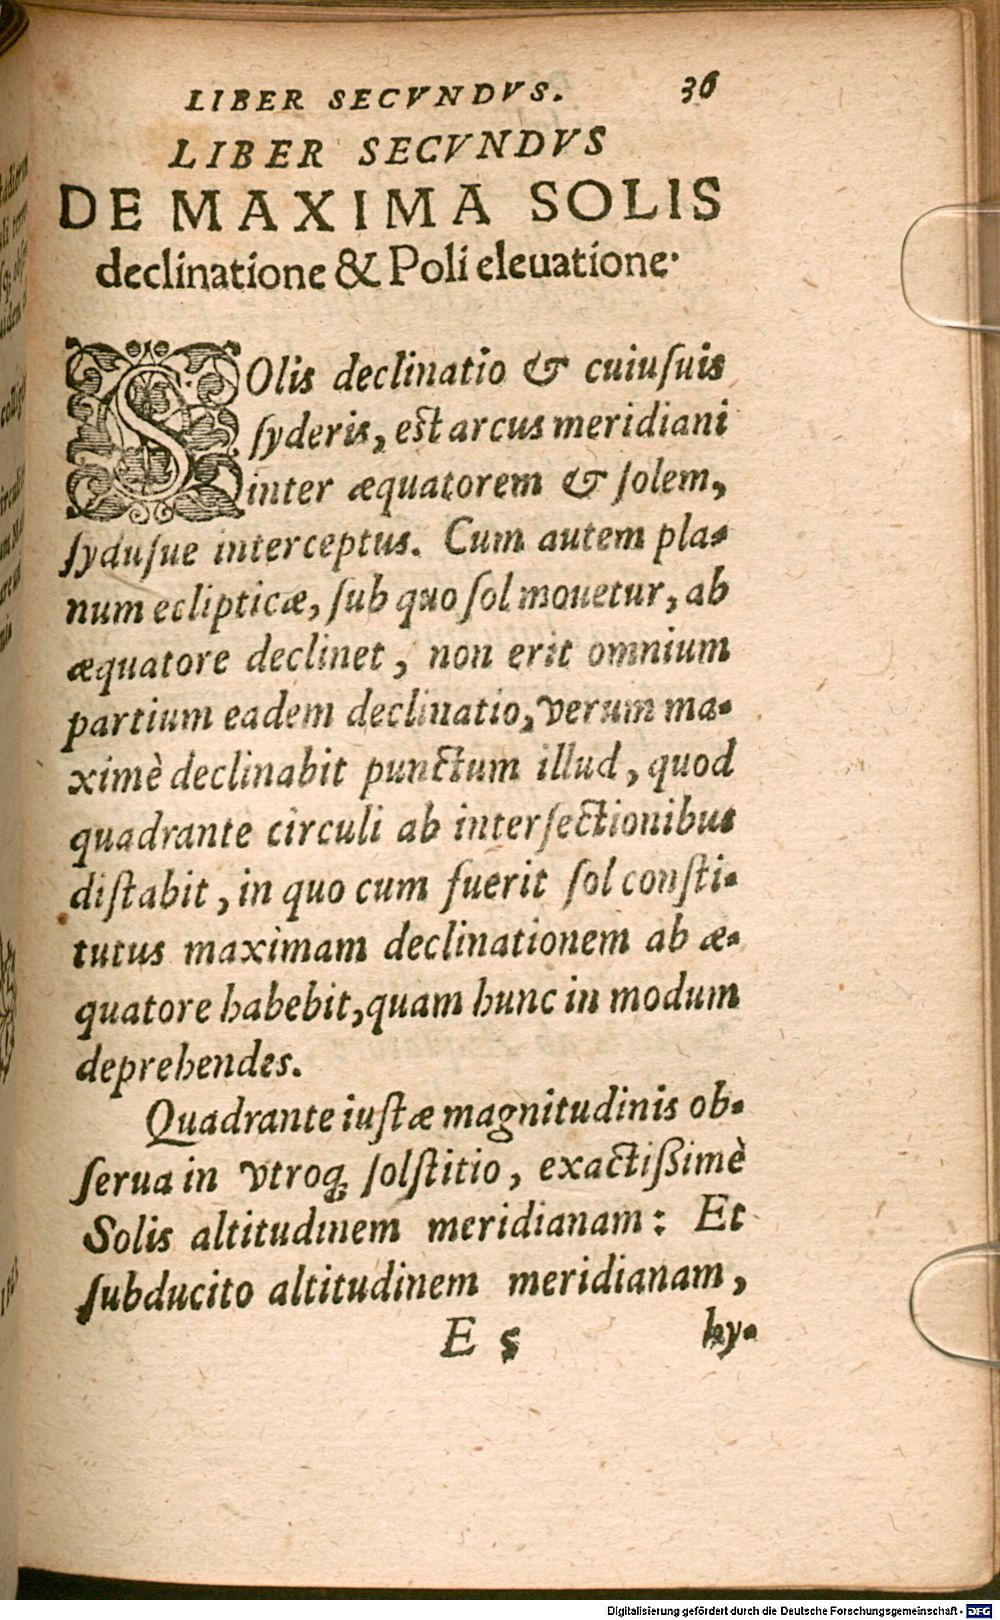 LIBER SECVNDVS. 36
LIBER SECVNDVS
DE MAXIMA SOLIS
declinatione & Poli eleuatione·
SOlis declinatio & cuiuſuis
ſyderis, est arcus meridiani
inter æquatorem & ſolem,
ſyduſue interceptus. Cum autem pla-
num eclipticæ, ſub quo ſol mouetur, ab
æquatore declinet, non erit omnium
partium eadem declinatio, verum ma-
ximè declinabit punctum illud, quod
quadrante circuli ab interſectionibus
diſtabit, in quo cum fuerit ſol conſti-
tutus maximam declinationem ab æ-
quatore habebit, quam hunc in modum
deprehendes.
Quadrante iuſtæ magnitudinis ob-
ſerua in vtroq; ſolſtitio, exactißimè
Solis altitudinem meridianam: Et
ſubducito altitudinem meridianam,
E 5 hy-
Digitalisierung gefördert durch die Deutsche Forschungsgemeinschaft - DFG